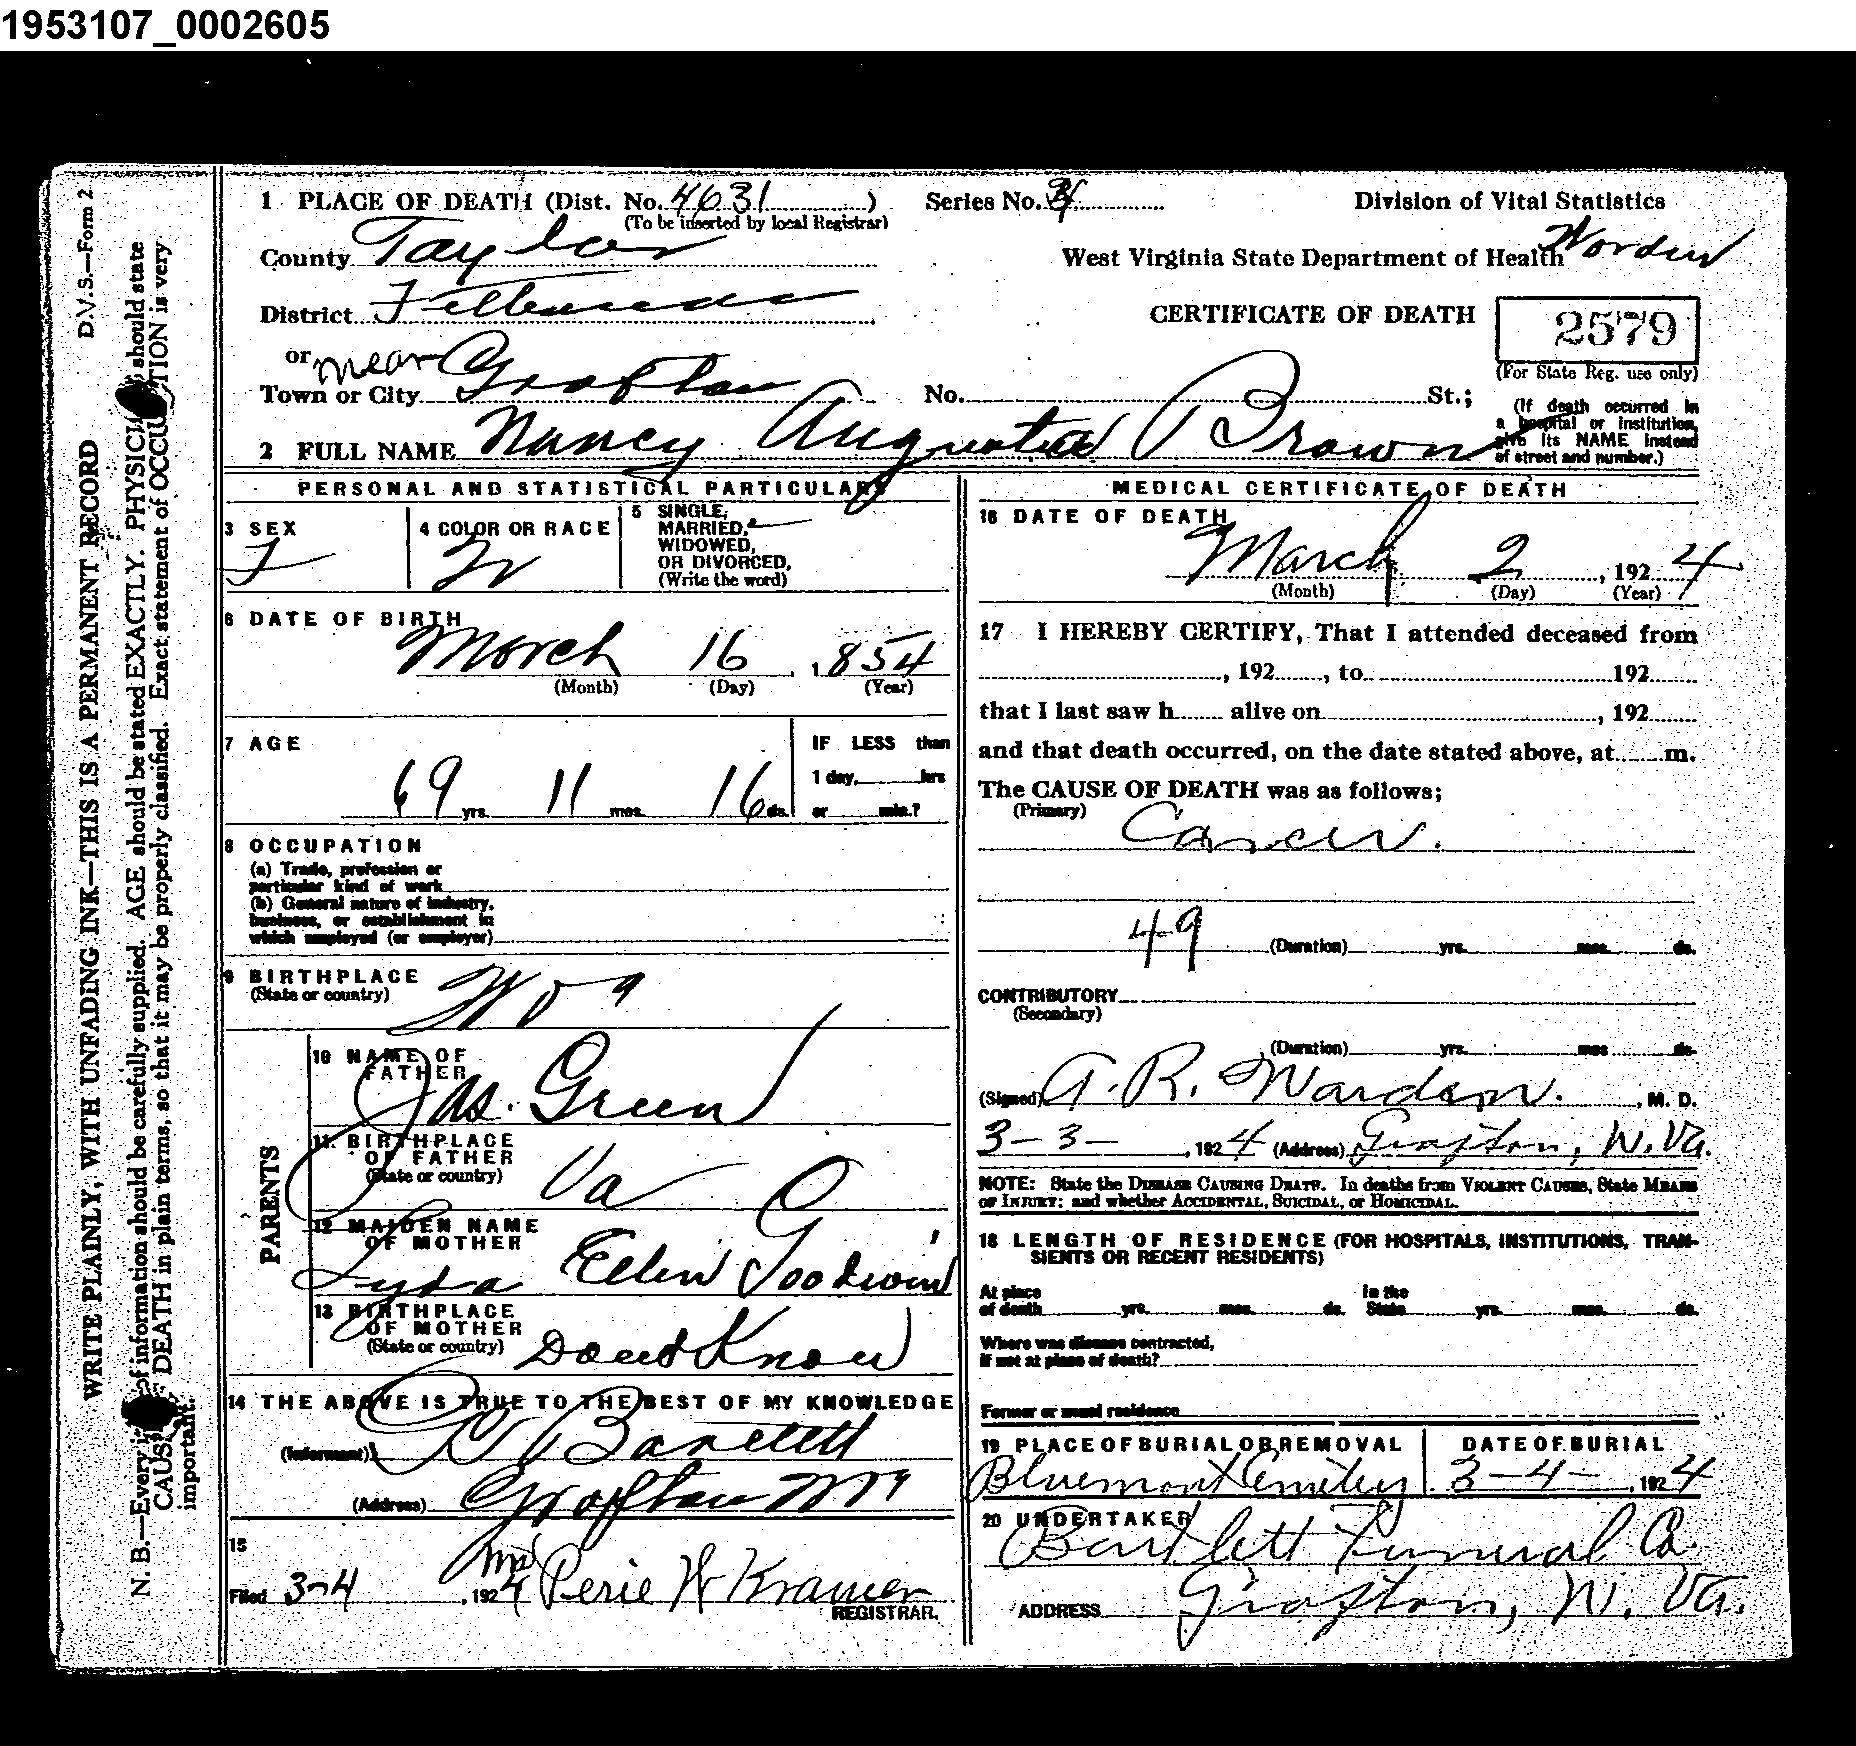 1953107_0002605
D.V.S.—Form 2
WRITE PLAINLY, WITH UNFADING INK—THIS IS A PERMANENT RECORD
N. B.—Every of information should be carefully supplied. AGE should be stated EXACTLY. PHYSICI should state
CAUS DEATH in plain terms, so that it may be properly classified. Exact statement of OCCU TION is very
important.
1 PLACE OF DEATH (Dist. No. 4631 )
(To be inserted by local Registrar)
Series No.
Division of Vital Statistics
County Taylor
West Virginia State Department of Health
District
CERTIFICATE OF DEATH
2579
(For State Reg. use only)
or near
Town or City Grafton
No. St.;
(If death occurred in
a hospital or institution,
give its NAME instead
of street and number.)
2 FULL NAME Nancy Augusta Brown
PERSONAL AND STATISTICAL PARTICULARS
3 SEX
F
4 COLOR OR RACE
W
5 SINGLE,
MARRIED,
WIDOWED,
OR DIVORCED,
(Write the word)
6 DATE OF BIRTH
March 16, 1854
(Month) (Day) (Year)
7 AGE
69 yrs. 11 mos. 16 ds.
IF LESS than
1 day, hrs
or min.?
8 OCCUPATION
(a) Trade, profession or
particular kind of work
(b) General nature of industry,
business, or establishment in
which employed (or employer)
9 BIRTHPLACE
(State or country) W Va
PARENTS
10 NAME OF
FATHER
Jas. Green
11 BIRTHPLACE
OF FATHER
(State or country) Va
12 MAIDEN NAME
OF MOTHER
Lyda Ellen Goodwin
13 BIRTHPLACE
OF MOTHER
(State or country) Dont Know
14 THE ABOVE IS TRUE TO THE BEST OF MY KNOWLEDGE
(Informant)
(Address) Grafton
15
Filed 3-4, 1924 Mrs Perie W Kramer
REGISTRAR.
MEDICAL CERTIFICATE OF DEATH
16 DATE OF DEATH
March 2, 1924
(Month) (Day) (Year)
17 I HEREBY CERTIFY, That I attended deceased from
, 192 , to 192
that I last saw h alive on , 192
and that death occurred, on the date stated above, at m.
The CAUSE OF DEATH was as follows;
(Primary)
Cancer.
49 (Duration) yrs. mos. ds.
CONTRIBUTORY
(Secondary)
(Duration) yrs. mos ds.
(Signed) A. R. Warden. , M. D.
3-3-, 1924 (Address) Grafton, W. Va.
NOTE: State the DISEASE CAUSING DEATH. In deaths from VIOLENT CAUSES, State MEANS
OF INJURY; and whether ACCIDENTAL, SUICIDAL, or HOMICIDAL.
18 LENGTH OF RESIDENCE (FOR HOSPITALS, INSTITUTIONS, TRAN-
SIENTS OR RECENT RESIDENTS)
At place
of death yrs. mos. ds.
In the
State yrs. mos. ds.
Where was disease contracted,
if not at place of death?
Former or usual residence
19 PLACE OF BURIAL OR REMOVAL
Bluemont Cemetery
DATE OF BURIAL
3-4-, 1924
20 UNDERTAKER
Bartlett Funeral Co.
ADDRESS Grafton, W. Va.